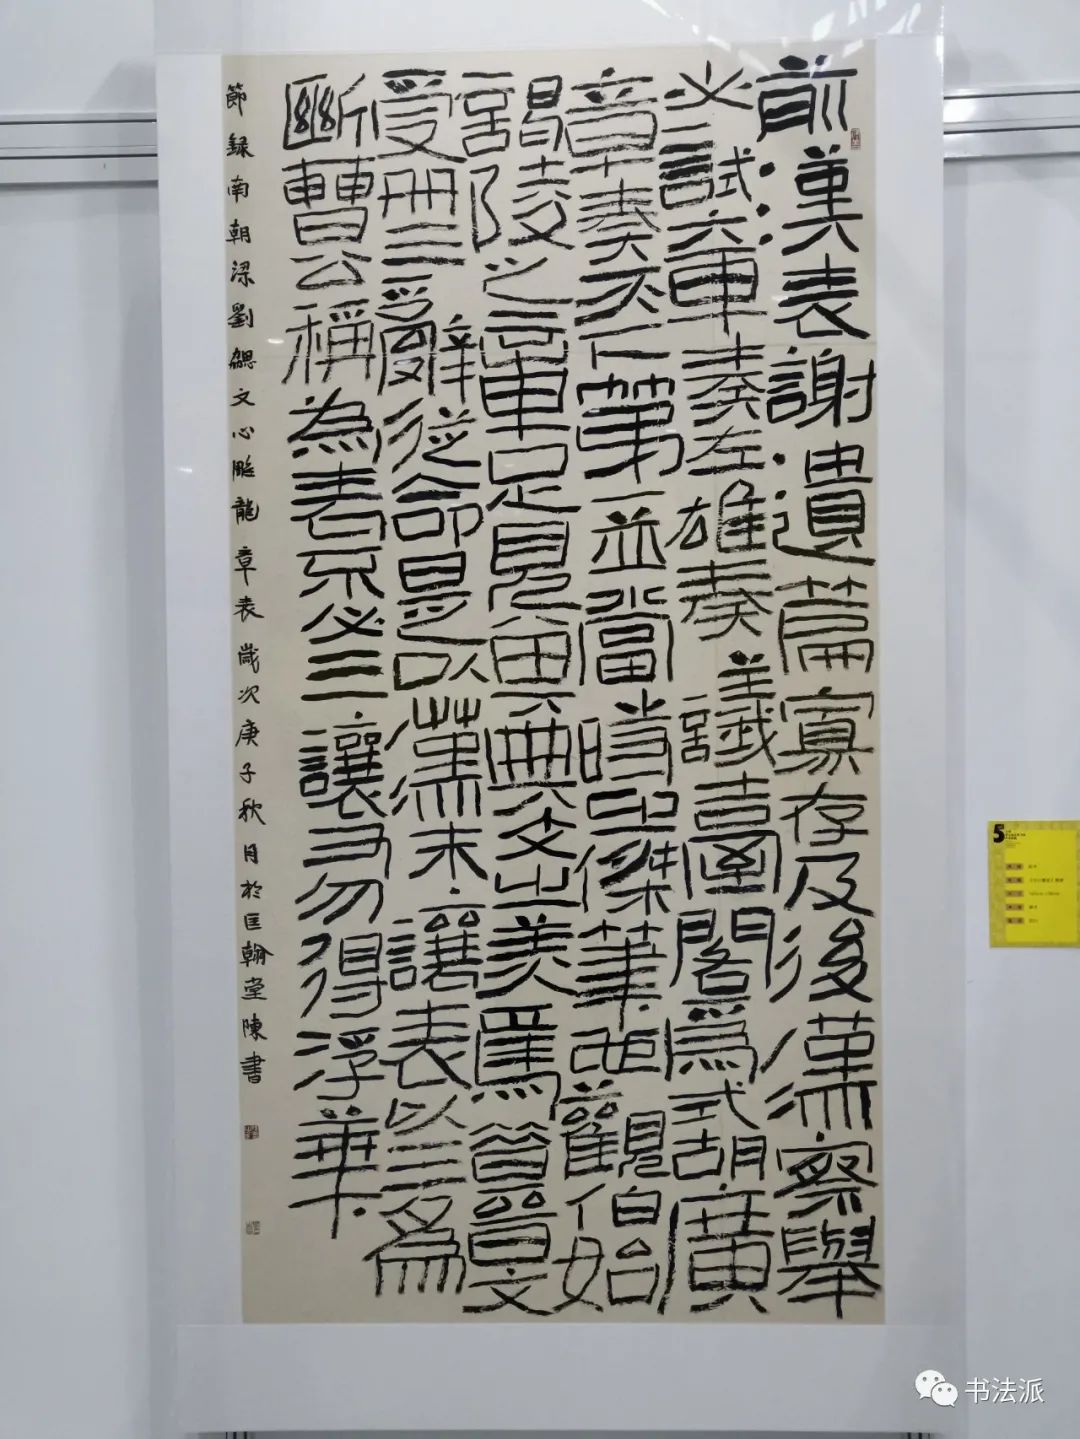 前漢表謝遺篇寡存及後漢察舉
必試章奏左雄奏議臺閣爲式胡廣
章奏天下第一並當時之傑筆也觀伯始
謁陵之章足見其典文之美焉昔晉文
受冊三辭從命是以漢末讓表以三爲
斷曹公稱為表不必三讓又勿得浮華
節録南朝梁劉勰文心雕龍章表歲次庚子秋月於匡翰堂陳書
5
书法派